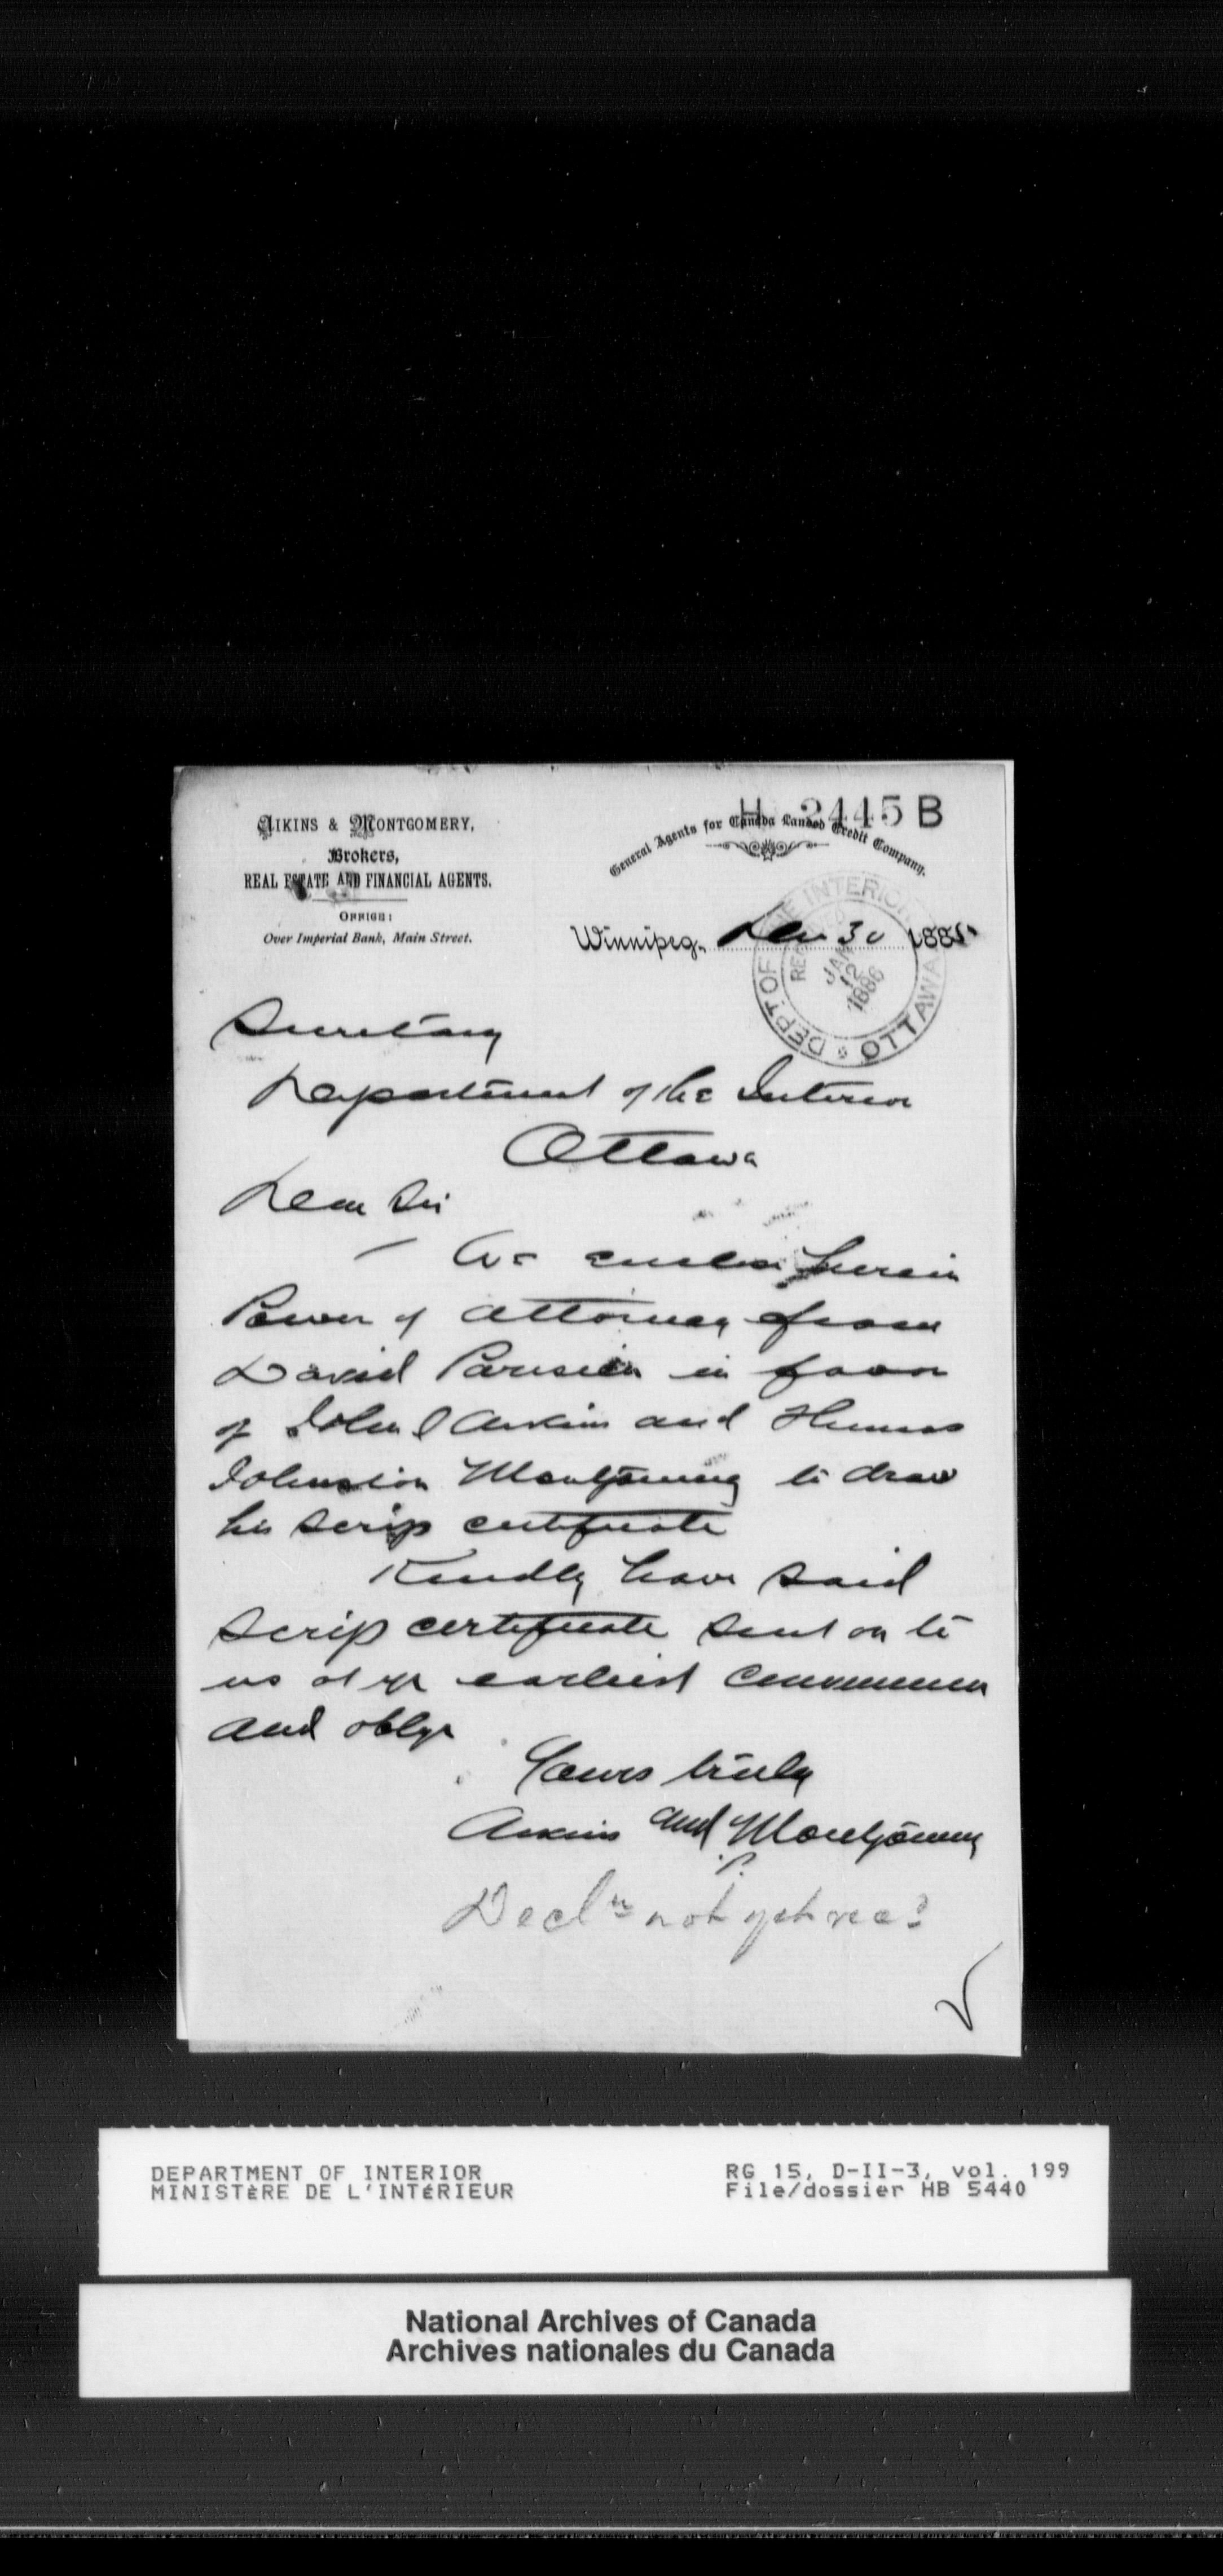 AIKINS & MONTGOMERY,
Brokers,
REAL ESTATE AND FINANCIAL AGENTS.
OFFICE:
Over Imperial Bank, Main Street.
H 2445 B
General Agents for Canada Landed Credit Company.
Winnipeg, Dec 30 1885
DEPT. OF THE INTERIOR OTTAWA
JAN 12 1886
Secretary
Department of the Interior
Ottawa
Dear Sir
We enclose herein
Power of attorney from
David Parisien in favor
of John Aikins and Thomas
Johnston Montgomery to draw
his scrip certificate
Kindly have said
scrip certificate sent on to
us at yr earliest convenience
and oblige
Yours truly
Aikins and Montgomery
Decln not yet recd
DEPARTMENT OF INTERIOR
MINISTÈRE DE L'INTÉRIEUR
RG 15, D-II-3, vol. 199
File/dossier HB 5440
National Archives of Canada
Archives nationales du Canada